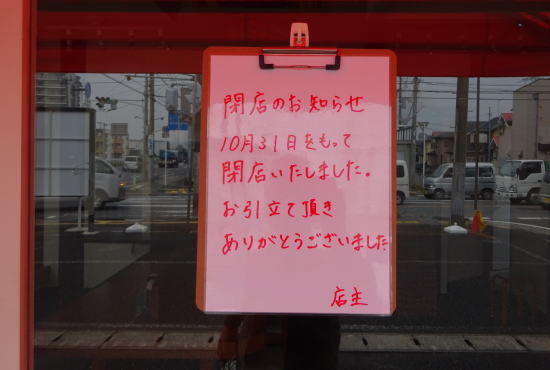 閉店のお知らせ
10月31日をもって
閉店いたしました。
お引立て頂き
ありがとうございました
店主